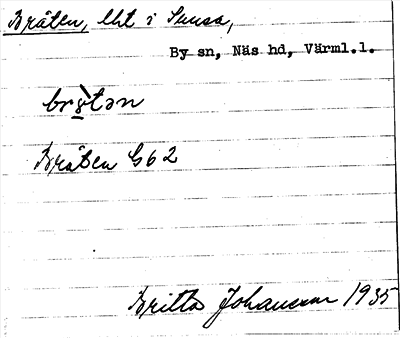 Bråten, lht i Smusa,
By sn, Näs hd, Värml.l.
bro̲tən
Bråten G62
Britta Johansson 1935